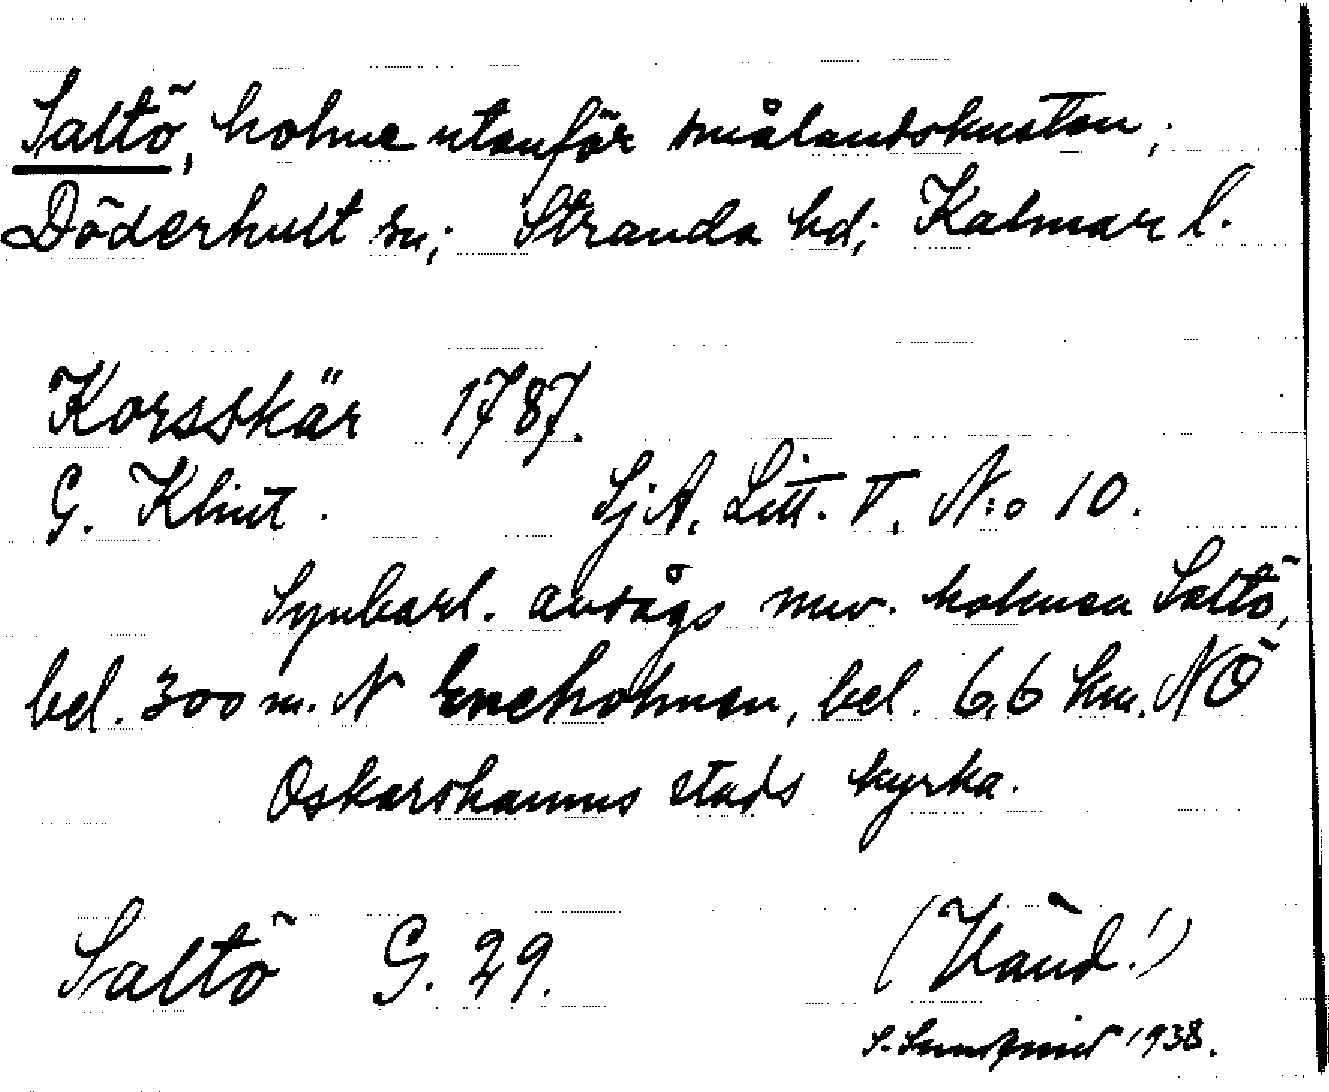 Saltö, holme utanför smålandskusten;
Döderhult sn; Stranda hd; Kalmar l.
Korsskär 1787.
G. Klint. SjA. Litt. V. N:o 10.
Synbarl. avsågs nuv. holmen Saltö,
bel. 300 m. N Eneholmen, bel. 6,6 km. NÖ
Oskarshamns stads kyrka.
Saltö G. 29.
(Vänd!)
S. 1938.